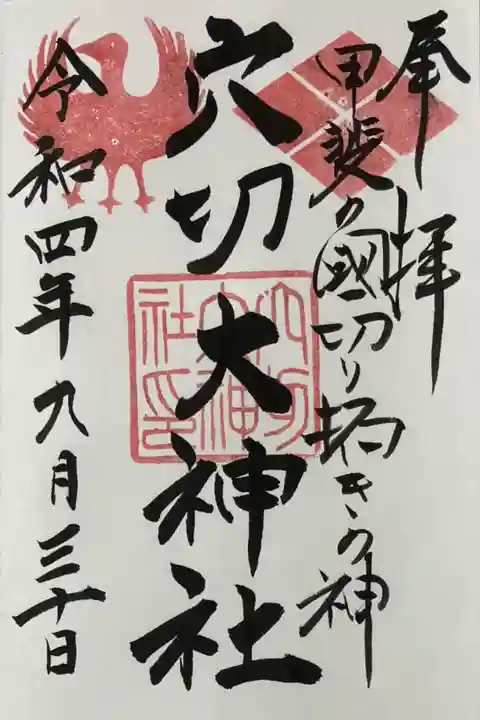 奉拝
甲斐の國切り拓きの神
穴切大神社
穴切大神社印
令和四年九月三十日